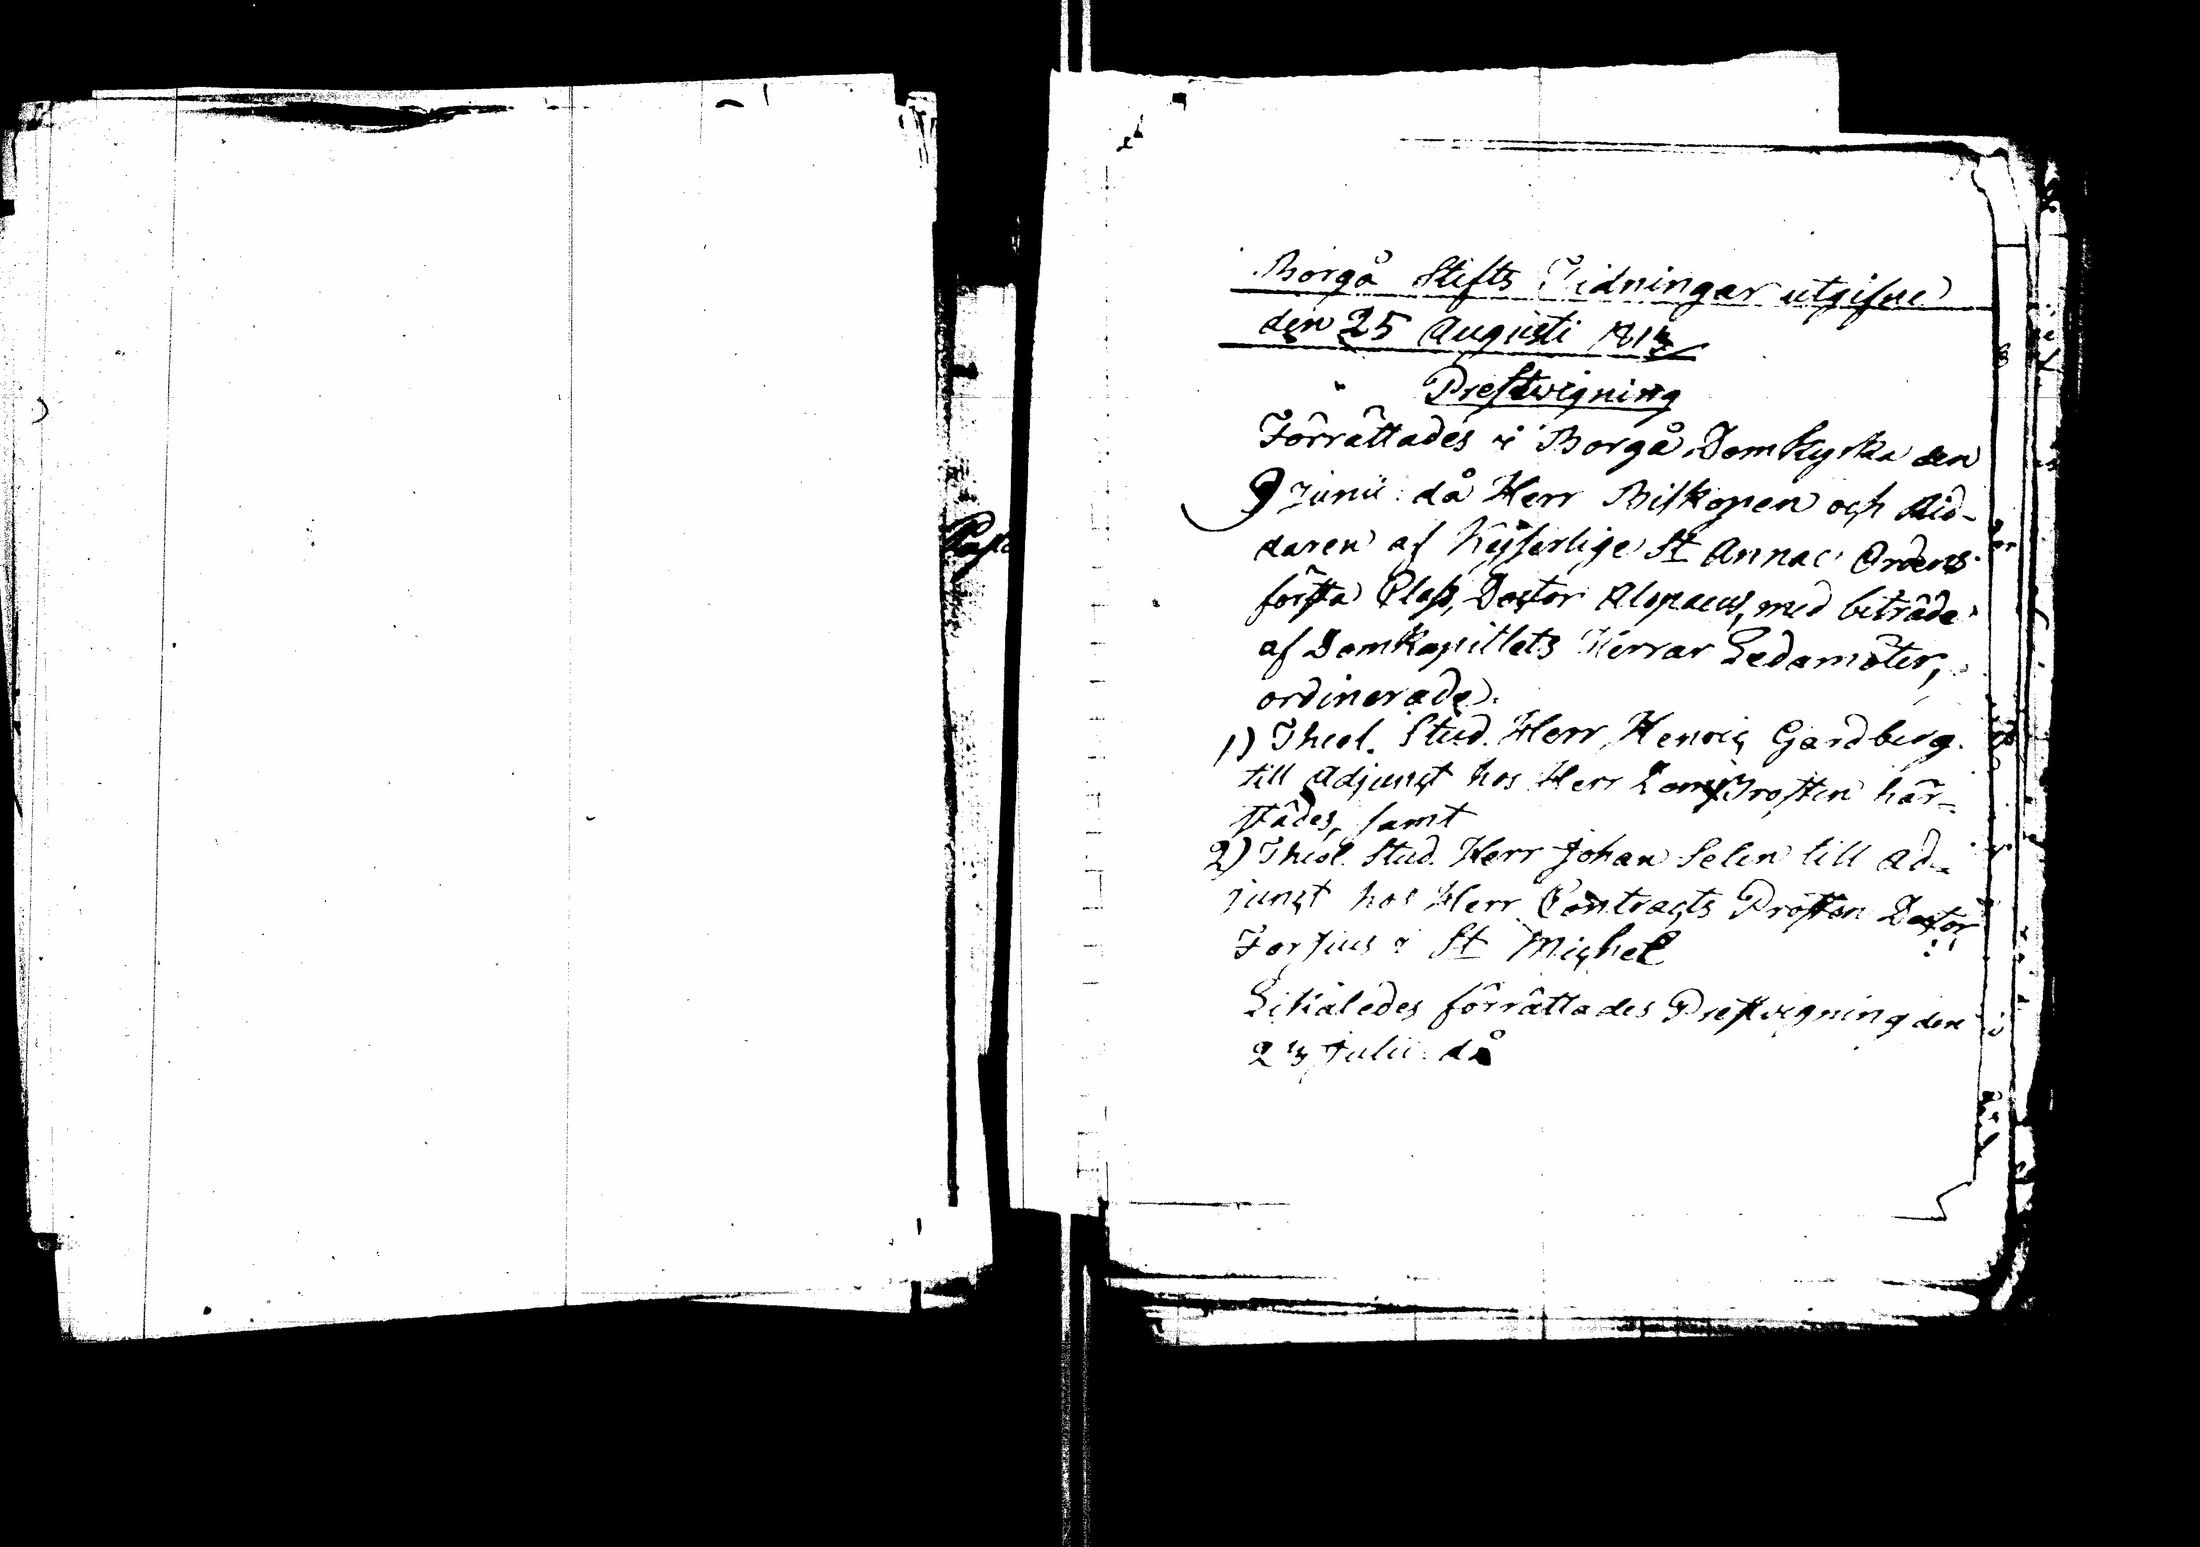 Borgå Stifts Tidningar utgifne
den 25 Augusti 1813
Prestwigning
Förrättades i Borgå Domkyrka den
9 Junii då Herr Biskopen och Rid-
daren af Kejserlige St Annae Ordens
första Class, Doctor Alopaeus, med biträde
af Domkapitlets Herrar Ledamöter,
ordinerade.
1) Theol. Stud. Herr Henric Gardberg
till Adjunct hos Herr DomProsten här-
städes, samt
2) Theol. Stud. Herr Johan Selin till Ad-
junct hos Herr Contracts Prosten Doctor
Forsius i St Michel
Likaledes förrättades Prestvigning den
23 Julii då